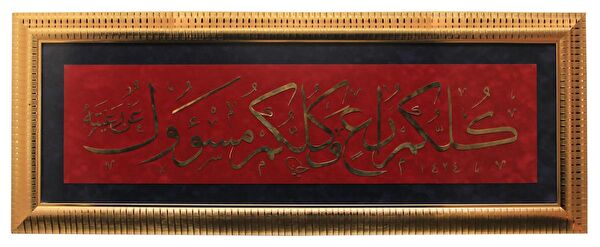 كُلُّكُمْ رَاعٍ وَكُلُّكُمْ مَسْؤُولٌ عَنْ رَعِيَّتِهِ
١٤٢٤